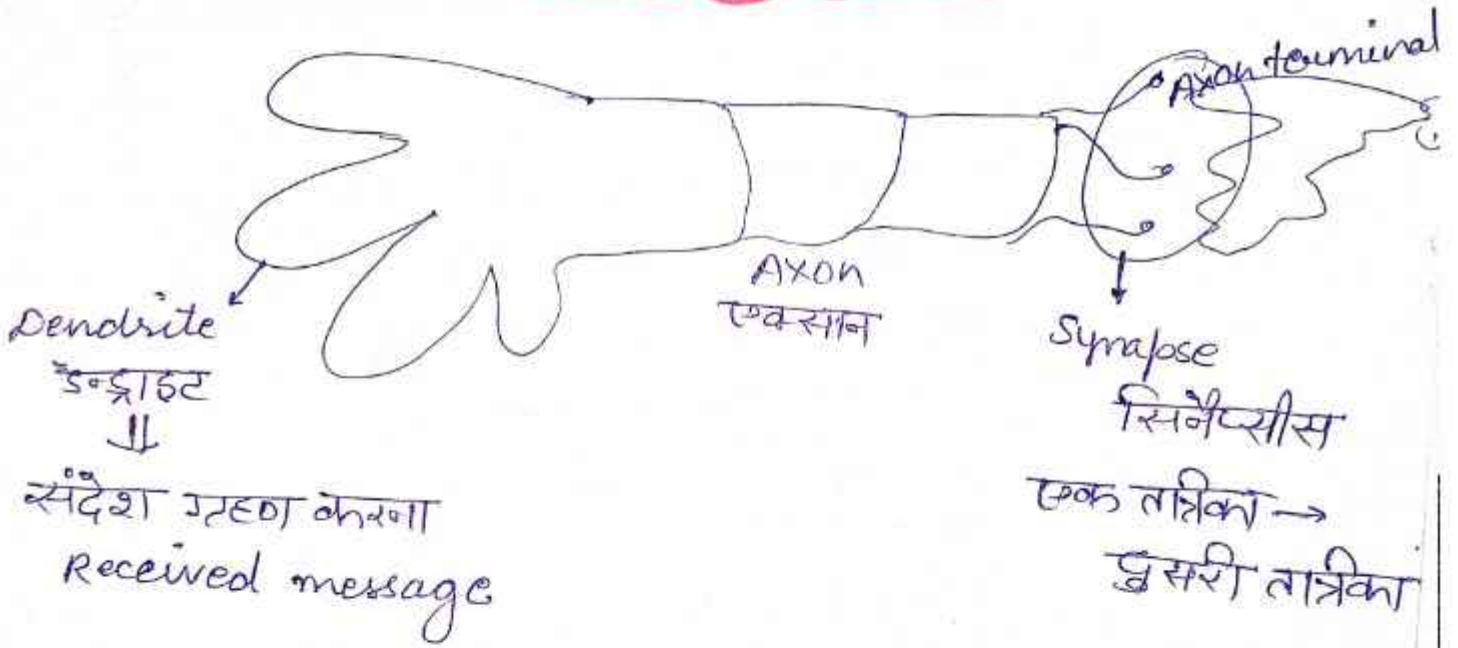 Axon terminal
Dendrite
डेन्ड्राइट
संदेश ग्रहण करना
Received message
Axon
एक्सान
Synapse
सिनैप्सीस
एक तंत्रिका →
दुसरी तंत्रिका